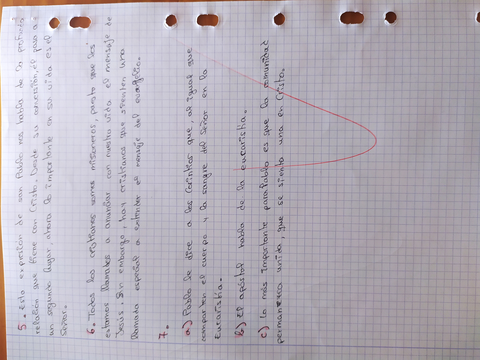 5. Esta expresión de san Pablo nos habla de la profunda
relación que tiene con Cristo. Desde su conversión, él pasa a
un segundo lugar, ahora lo importante en su vida es el
Señor.
6. Todos los cristianos somos misioneros, puesto que los
estamos llamados a anunciar con nuestra vida el mensaje de
Jesús. Sin embargo, hay cristianos que sienten una
llamada especial a entender el mensaje del evangelio.
7.
a) Pablo se dice a los Corintios que, al igual que
comparten el cuerpo y la sangre del Señor en la
Eucaristía.
b) El apóstol habla de la eucaristía.
c) Lo más importante para Pablo es que la comunidad
permanezca unida, que se sienta una en Cristo.